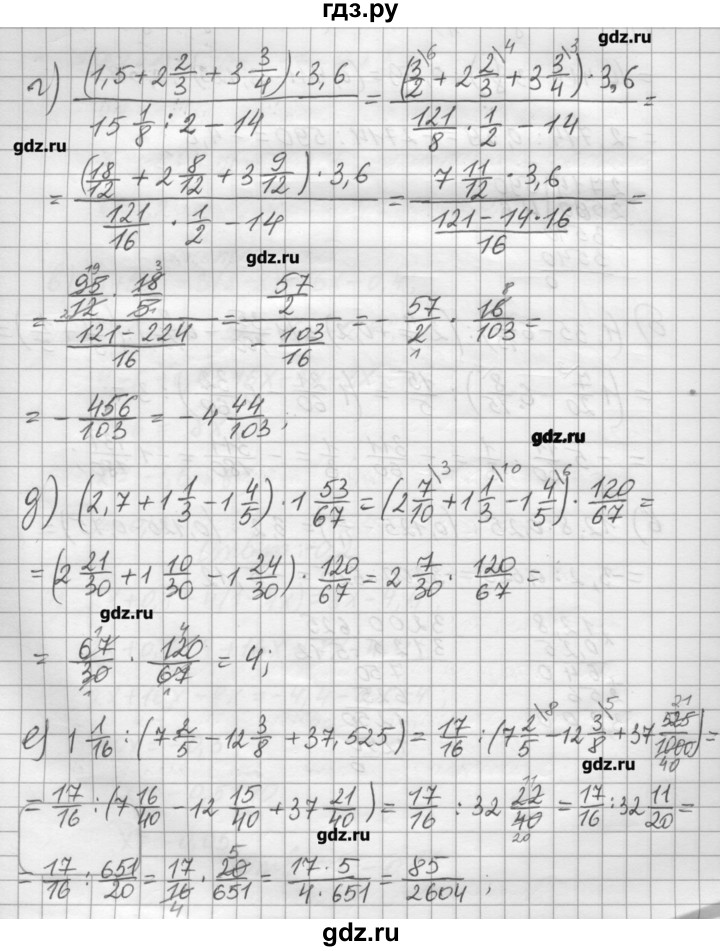 гдз.ру
gdz.ru
г) ((1,5 + 2 2/3 + 3 3/4) · 3,6) / (15 1/8 : 2 − 14) = ((3/2\6 + 2 2/3\4 + 3 3/4\3) · 3,6) / (121/8 · 1/2 − 14) =
gdz.ru
= ((18/12 + 2 8/12 + 3 9/12) · 3,6) / (121/16 · 1/2 − 14) = (7 11/12 · 3,6) / ((121 − 14 · 16)/16) =
gdz.ru
= (95/12 · 18/5) / ((121 − 224)/16) = (57/2) / (− 103/16) = − 57/2 · 16/103 =
= − 456/103 = − 4 44/103;
gdz.ru
д) (2,7 + 1 1/3 − 1 4/5) · 1 53/67 = (2 7/10\3 + 1 1/3\10 − 1 4/5\6) · 120/67 =
= (2 21/30 + 1 10/30 − 1 24/30) · 120/67 = 2 7/30 · 120/67 =
gdz.ru
= 67/30 · 120/67 = 4;
е) 1 1/16 : (7 2/5 − 12 3/8 + 37,525) = 17/16 : (7 2/5\8 − 12 3/8\5 + 37 525/1000) =
gdz.ru
= 17/16 : (7 16/40 − 12 15/40 + 37 21/40) = 17/16 : 32 22/40 = 17/16 : 32 11/20 =
gdz.ru
= 17/16 : 651/20 = 17/16 · 20/651 = (17 · 5)/(4 · 651) = 85/2604;